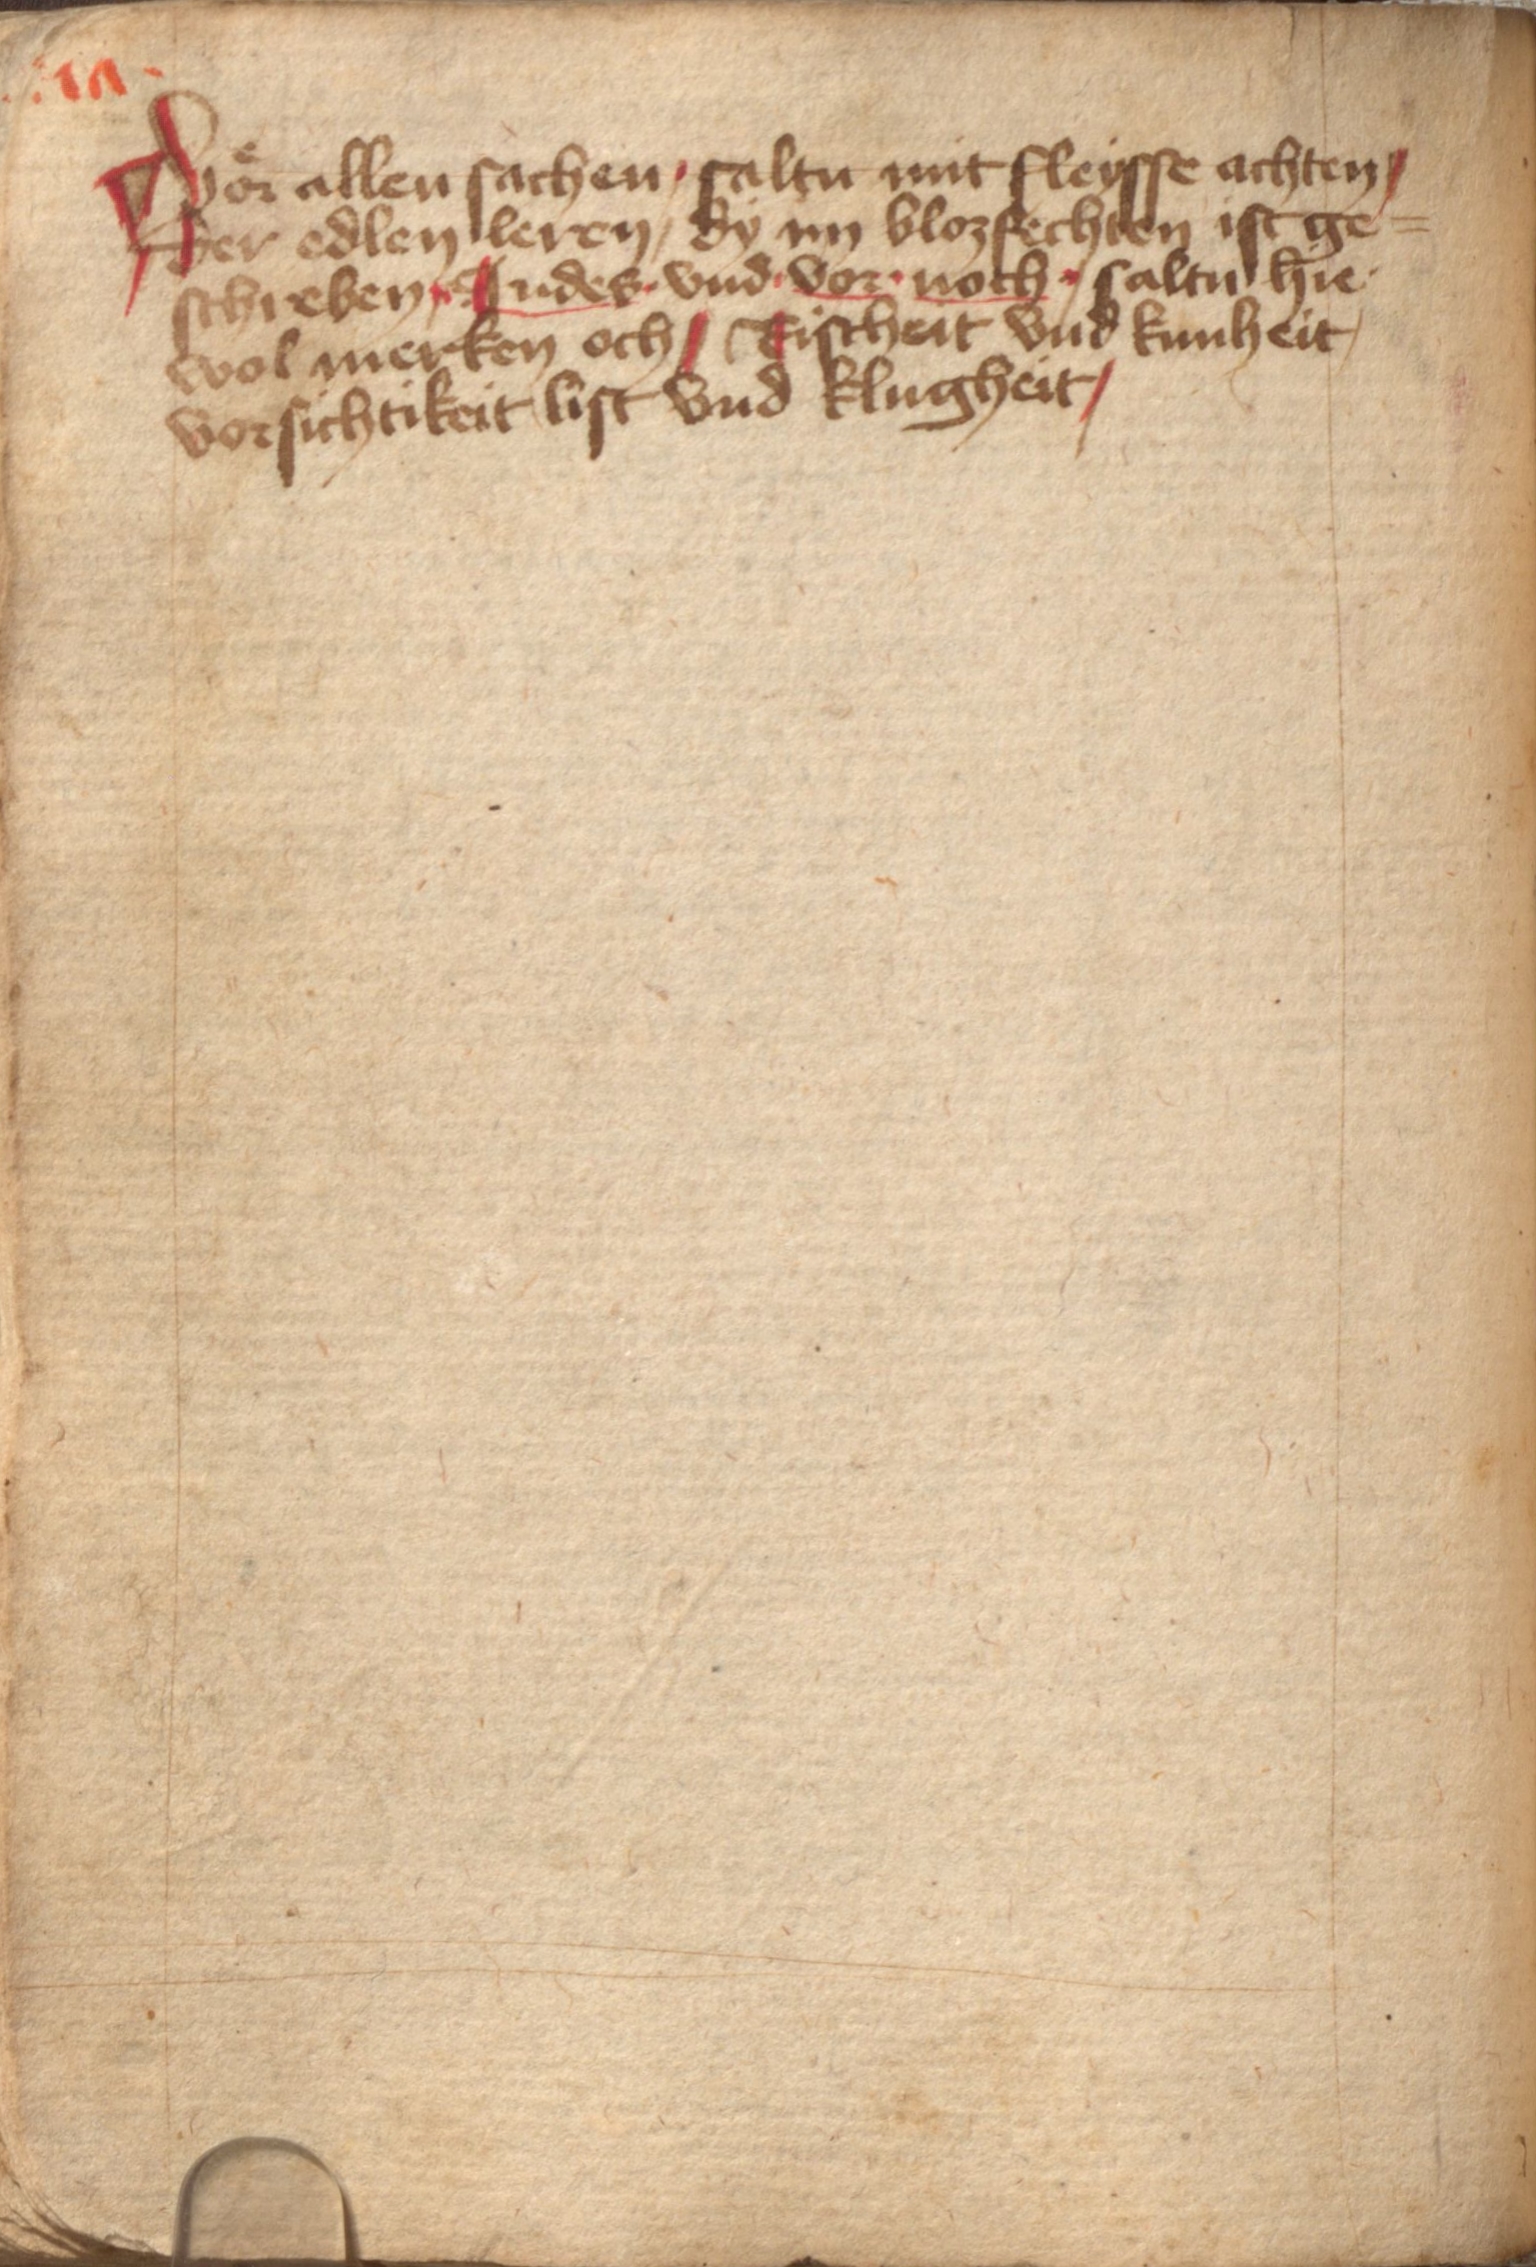 Voͤr allen sachen · saltu mit fleysse achten /
Der edlen leren / dy im blozfechten ist ge=
schreben · Indes · vnd · vor · noch · saltu hie ·
wol merken och / Rischeit vnd kunheit /
vorsichtikeit list vnd klugheit /